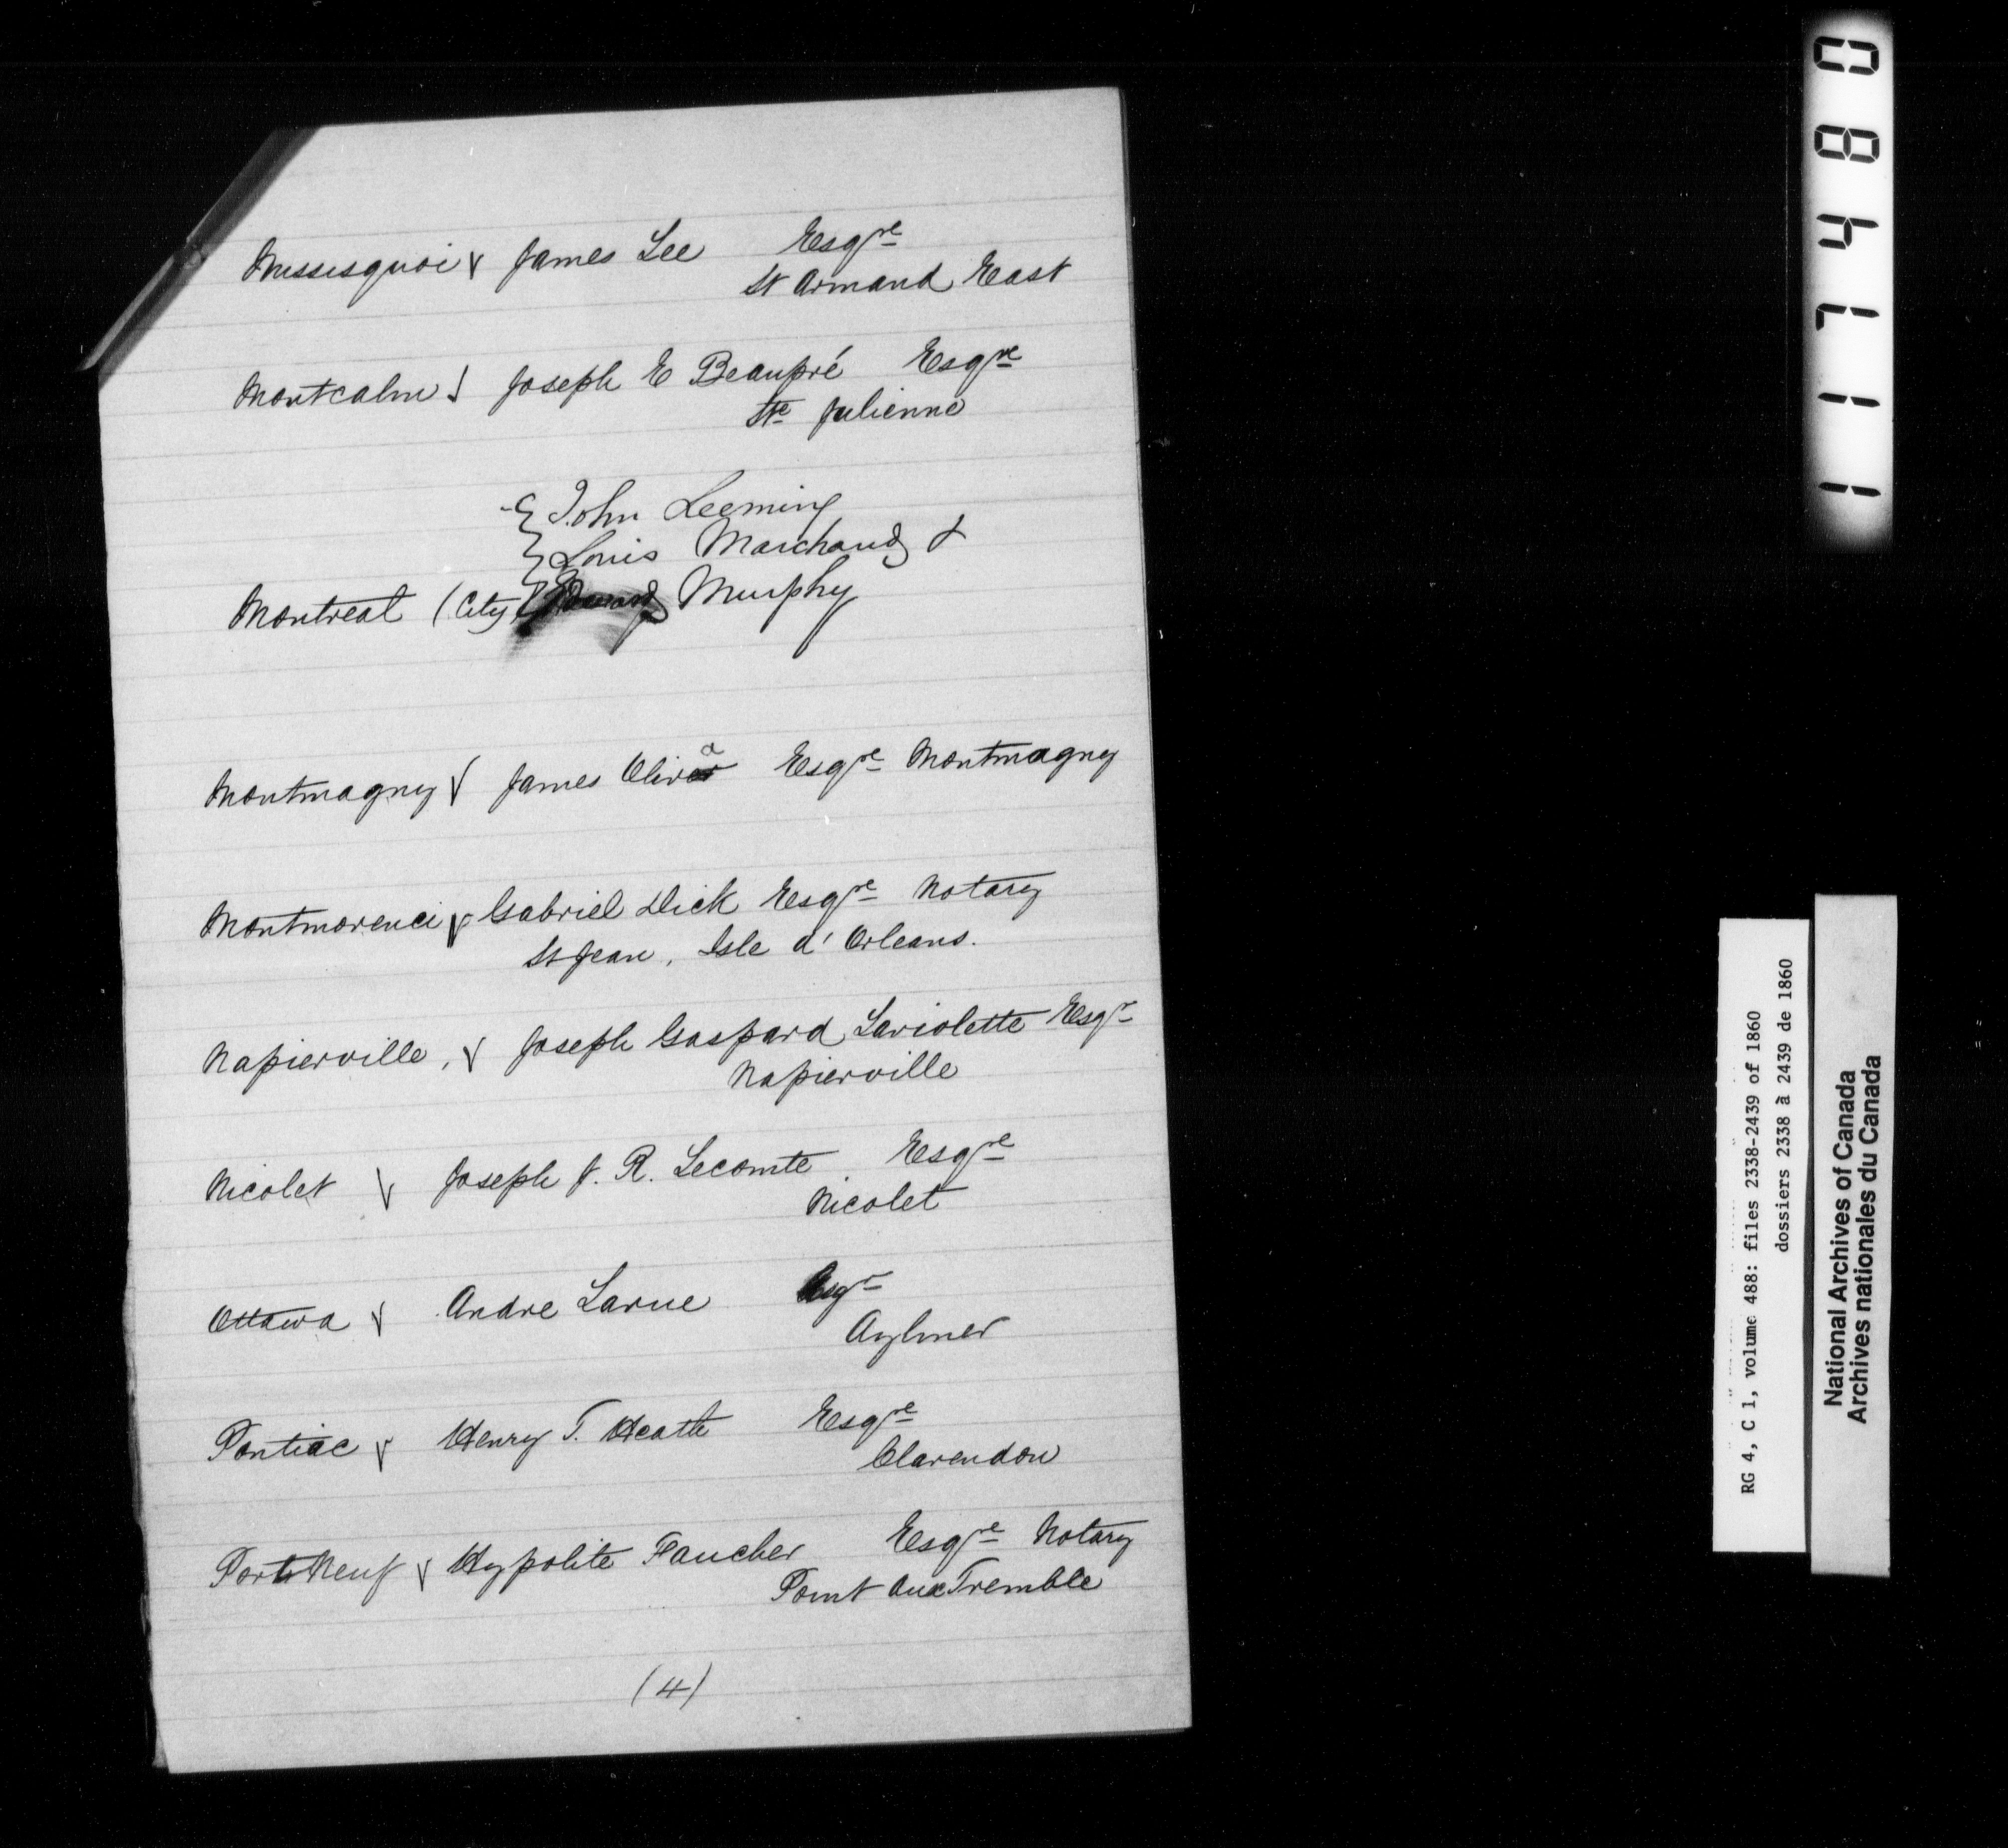 Missisquoi √ James Lee Esqre
St Armand East
Montcalm √ Joseph E Beaupré Esqre
Ste Julienne
John Leeming
Louis Marchand &
Montreal (City) Edward Murphy
Montmagny √ James Oliva Esqre Montmagny
Montmorenci √ Gabriel Dick Esqre Notary
St Jean, Isle d'Orleans.
Napierville, √ Joseph Gaspard Laviolette Esqr
Napierville
Nicolet √ Joseph J. R. Lecomte Esqre
Nicolet
Ottawa √ Andre Larue Esqr
Aylmer
Pontiac √ Henry T. Heath Esqre
Clarendon
Portneuf √ Hypolite Faucher Esqre Notary
Point Aux Tremble
(4)
117480
RG 4, C 1, volume 488: files 2338-2439 of 1860
dossiers 2338 à 2439 de 1860
National Archives of Canada
Archives nationales du Canada